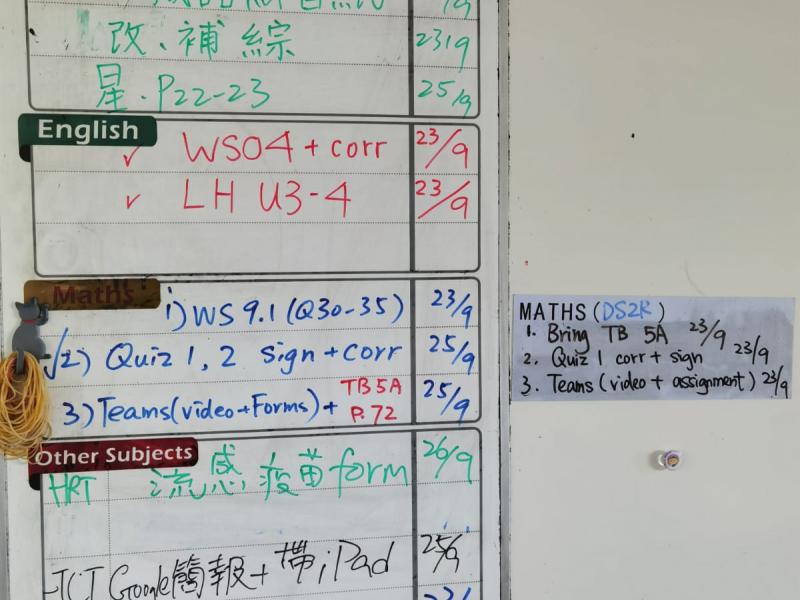 改、補 綜 23/9
星．P22-23 25/9
English
✓ WS04 + corr 23/9
✓ LH U3-4 23/9
Maths
1) WS 9.1 (Q30-35) 23/9
√2) Quiz 1, 2 sign + corr 25/9
3) Teams (video + Forms) + TB 5A P.72 25/9
Other Subjects
HRT 流感疫苗 form 26/9
Google簡報 + 帶 iPad 25/9
MATHS (DS2R)
1. Bring TB 5A 23/9
2. Quiz 1 corr + sign 23/9
3. Teams (video + assignment) 23/9